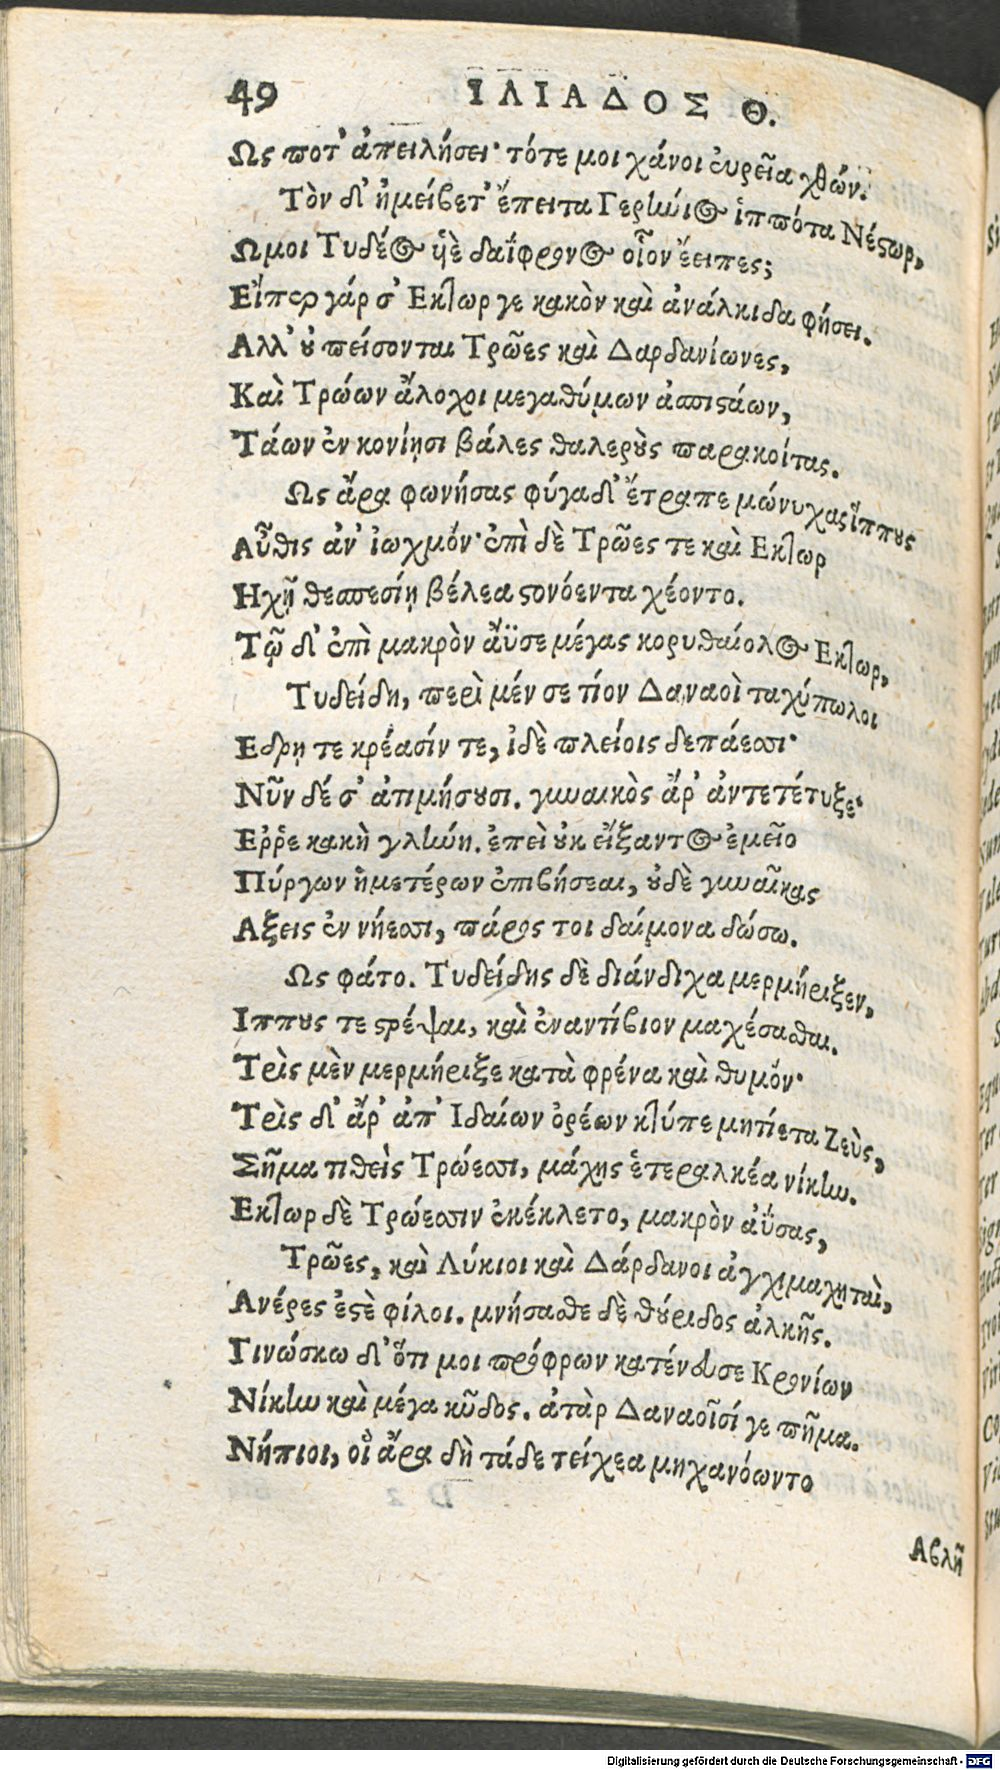 49 ΙΛΙΑΔΟΣ Θ.
Ως ποτ' ἀπειλήσει· τότε μοι χάνοι εὐρεῖα χθών.
Τὸν δ' ἠμείβετ' ἔπειτα Γερήνιος ἱππότα Νέστωρ,
Ωμοι Τυδέος ὑὲ δαΐφρονος οἷον ἔειπες;
Εἴπερ γάρ σ' Εκτωρ γε κακὸν καὶ ἀνάλκιδα φήσει.
Αλλ' οὐ πείσονται Τρῶες καὶ Δαρδανίωνες,
Καὶ Τρώων ἄλοχοι μεγαθύμων ἀσπιστάων,
Τάων ἐν κονίῃσι βάλες θαλεροὺς παρακοίτας.
Ως ἄρα φωνήσας φύγαδ' ἔτραπε μώνυχας ἵππους
Αὖθις ἀν' ἰωχμόν· ἐπὶ δὲ Τρῶες τε καὶ Εκτωρ
Ηχῇ θεσπεσίῃ βέλεα στονόεντα χέοντο.
Τῷ δ' ἐπὶ μακρὸν ἄϋσε μέγας κορυθαίολος Εκτωρ,
Τυδείδη, περὶ μέν σε τίον Δαναοὶ ταχύπωλοι
Εδρῃ τε κρέασίν τε, ἰδὲ πλείοις δεπάεσσι·
Νῦν δέ σ' ἀτιμήσουσι. γυναικὸς ἄρ' ἀντετέτυξε·
Εῤῥε κακὴ γλήνη. ἐπεὶ οὐκ εἴξαντος ἐμεῖο
Πύργων ἡμετέρων ἐπιβήσεαι, οὐδὲ γυναῖκας
Αξεις ἐν νήεσσι, πάρος τοι δαίμονα δώσω.
Ως φάτο. Τυδείδης δὲ διάνδιχα μερμήριξεν,
Ιππους τε στρέψαι, καὶ ἐναντίβιον μαχέσασθαι.
Τρὶς μὲν μερμήριξε κατὰ φρένα καὶ θυμόν·
Τρὶς δ' ἄρ' ἀπ' Ιδαίων ὀρέων κτύπε μητίετα Ζεὺς,
Σῆμα τιθεὶς Τρώεσσι, μάχης ἑτεραλκέα νίκην.
Εκτωρ δὲ Τρώεσσιν ἐκέκλετο, μακρὸν ἀΰσας,
Τρῶες, καὶ Λύκιοι καὶ Δάρδανοι ἀγχιμαχηταὶ,
Ανέρες ἐστὲ φίλοι. μνήσασθε δὲ θούριδος ἀλκῆς.
Γινώσκω δ' ὅτι μοι πρόφρων κατένευσε Κρονίων
Νίκην καὶ μέγα κῦδος. ἀτὰρ Δαναοῖσί γε πῆμα.
Νήπιοι, οἳ ἄρα δὴ τάδε τείχεα μηχανόωντο
Αβλῆ
Digitalisierung gefördert durch die Deutsche Forschungsgemeinschaft - DFG